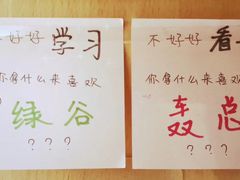 不好好学习
你拿什么来喜欢
绿谷
???
不好好看
你拿什么来喜欢
轰总
???